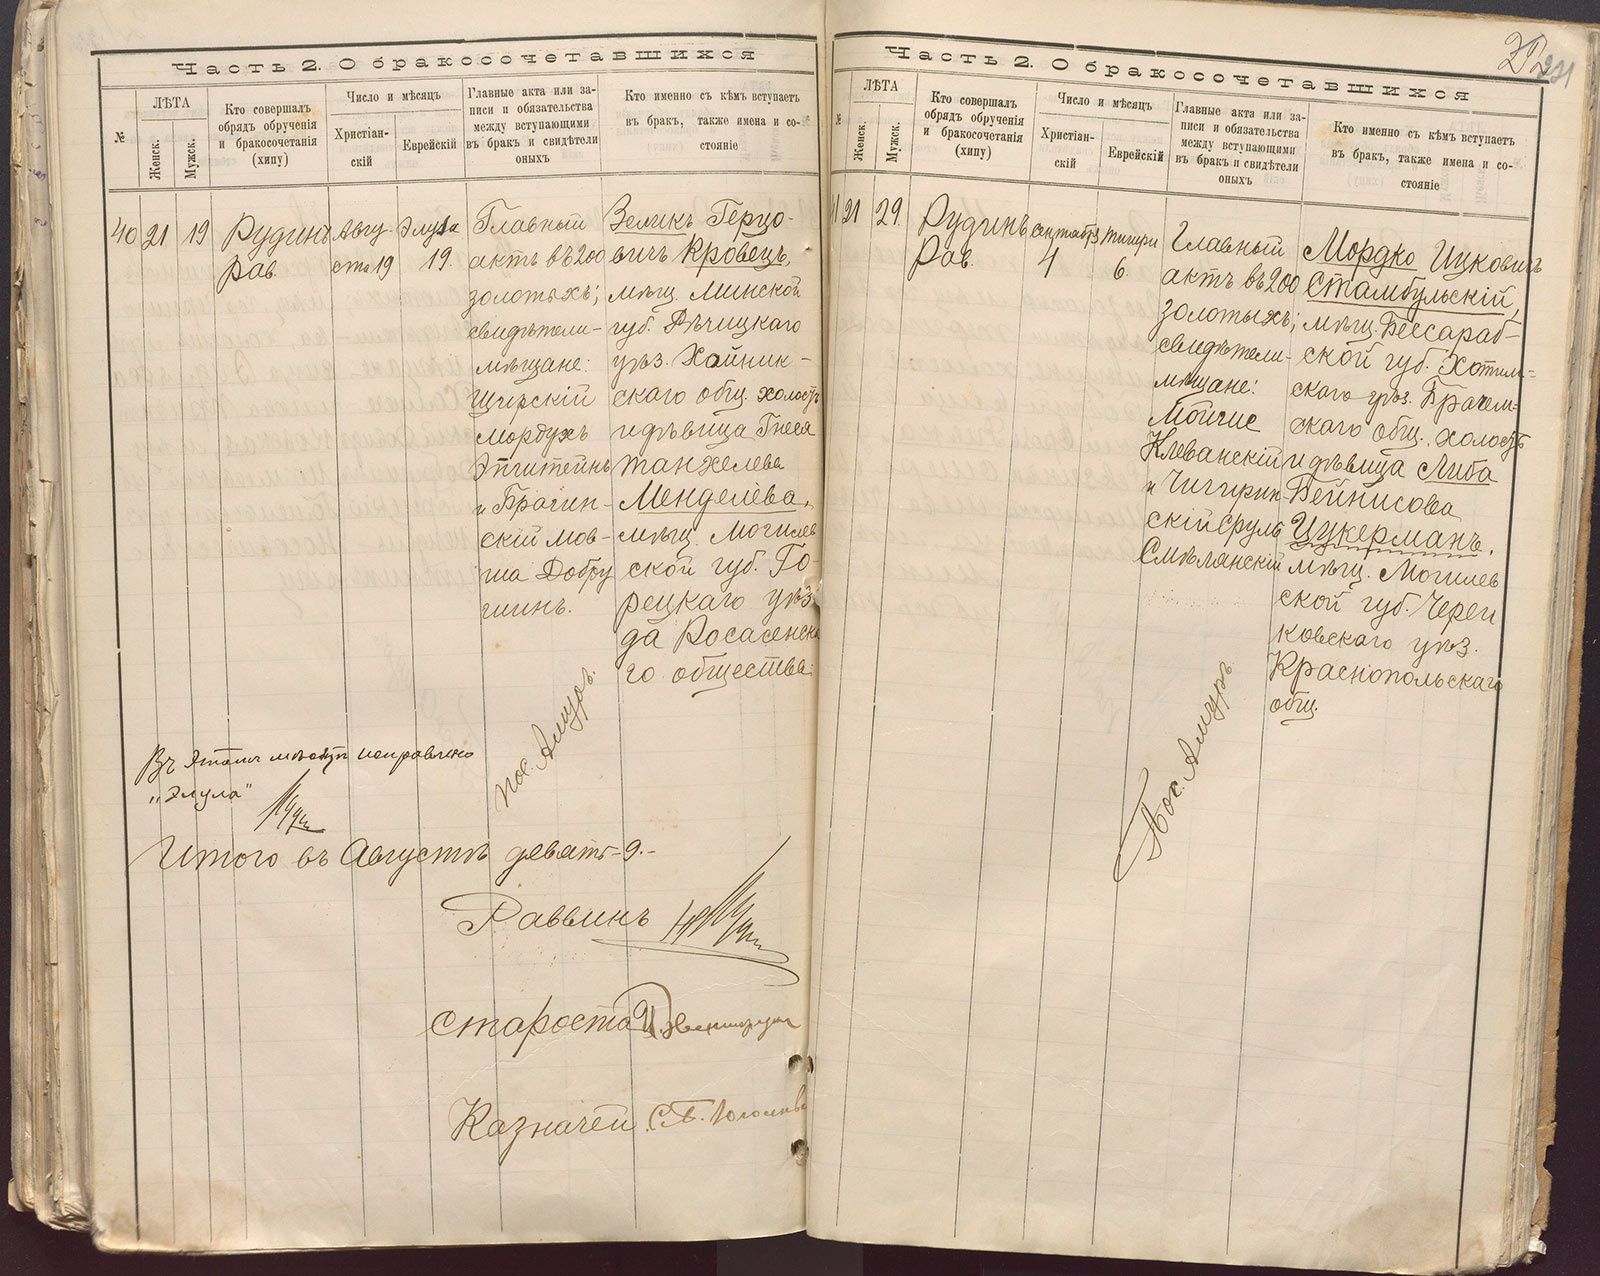 Часть 2. О бракосочетавшихся
№
ЛѢТА
Женск.
Мужск.
Кто совершалъ
обрядъ обрученія
и бракосочетанія
(хипу)
Число и мѣсяцъ
Христіан-
скій
Еврейскій
Главные акта или за-
писи и обязательства
между вступающими
въ бракъ и свидѣтели
оныхъ
Кто именно съ кѣмъ вступаетъ
въ бракъ, также имена и со-
стояніе
40
21
19
Рудинъ
Рав.
Авгу-
ста 19
Элула
19.
Главный
актъ въ 200
золотыхъ;
свидѣтели-
мѣщане:
Щирскій
Мордухъ
Эпштейнъ
и Брагин-
скій Мов-
ша Добру
шинъ.
пос. Амуръ.
Зеликъ Герцо-
вичъ Кровецъ,
мѣщ. Минской
губ. Рѣчицкаго
уѣз. Хойник-
скаго общ. холостъ
и дѣвица Гнеся
Танхелева
Менделева,
мѣщ. Могилев
ской губ. Го-
рецкаго уѣз-
да Росасенска
го общества:
Въ этомъ мѣстѣ исправлено
„Элула“
Итого въ Августѣ девять-9.-
Раввинъ
Староста
Казначей
Часть 2. О бракосочетавшихся
221
№
ЛѢТА
Женск.
Мужск.
Кто совершалъ
обрядъ обрученія
и бракосочетанія
(хипу)
Число и мѣсяцъ
Христіан-
скій
Еврейскій
Главные акта или за-
писи и обязательства
между вступающими
въ бракъ и свидѣтели
оныхъ
Кто именно съ кѣмъ вступаетъ
въ бракъ, также имена и со-
стояніе
41
21
29.
Рудинъ
Рав.
сентября
4
Тишри
6.
Главный
актъ въ 200
золотыхъ;
свидѣтели-
мѣщане:
Мойше
Клеванскій
и Чигирин-
скій Сруль
Смѣлянскій
Пос. Амуръ
Мордко Ицковичъ
Стамбульскій,
мѣщ. Бессараб-
ской губ. Хотин-
скаго уѣз. Брачем-
скаго общ., холостъ
и дѣвица Либа
Бейнисова
Цукерманъ,
мѣщ. Могилев
ской губ. Чери
ковскаго уѣз.
Краснопольскаго
общ.